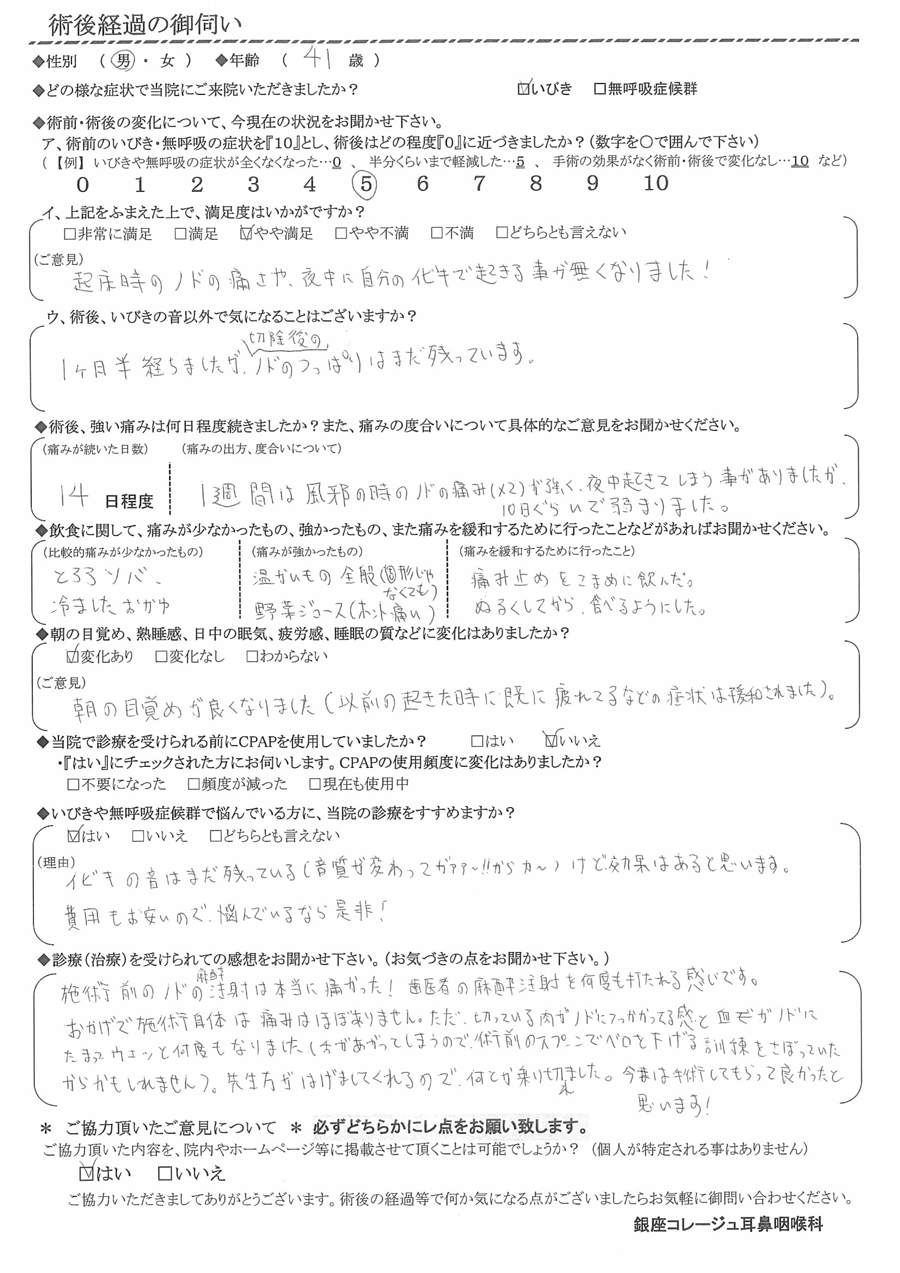 術後経過の御伺い
◆性別 ( 男 ・ 女 ) ◆年齢 ( 41 歳 )
◆どの様な症状で当院にご来院いただきましたか? ☑いびき □無呼吸症候群
◆術前・術後の変化について、今現在の状況をお聞かせ下さい。
ア、術前のいびき・無呼吸の症状を『10』とし、術後はどの程度『0』に近づきましたか?(数字を〇で囲んで下さい)
(【例】いびきや無呼吸の症状が全くなくなった…0 、 半分くらいまで軽減した…5 、 手術の効果がなく術前・術後で変化なし…10 など)
0 1 2 3 4 5 6 7 8 9 10
イ、上記をふまえた上で、満足度はいかがですか?
□非常に満足 □満足 ☑やや満足 □やや不満 □不満 □どちらとも言えない
(ご意見)
起床時のノドの痛さや、夜中に自分のイビキで起きる事が無くなりました!
ウ、術後、いびきの音以外で気になることはございますか?
切除後の
1ヶ月半経ちましたが、ノドのつっぱりはまだ残っています。
◆術後、強い痛みは何日程度続きましたか?また、痛みの度合いについて具体的なご意見をお聞かせください。
(痛みが続いた日数) (痛みの出方、度合いについて)
14 日程度 1週間は風邪の時のノドの痛み(×2)が強く、夜中起きてしまう事がありましたが、
10日ぐらいで弱まりました。
◆飲食に関して、痛みが少なかったもの、強かったもの、また痛みを緩和するために行ったことなどがあればお聞かせください。
(比較的痛みが少なかったもの) (痛みが強かったもの) (痛みを緩和するために行ったこと)
とろろソバ、 温かいもの全般(固形じゃなくても) 痛み止めをこまめに飲んだ。
冷ましたおかゆ 野菜ジュース(ホント痛い) ぬるくしてから、食べるようにした。
◆朝の目覚め、熟睡感、日中の眠気、疲労感、睡眠の質などに変化はありましたか?
☑変化あり □変化なし □わからない
(ご意見)
朝の目覚めが良くなりました(以前の起きた時に既に疲れてるなどの症状は緩和されました)。
◆当院で診療を受けられる前にCPAPを使用していましたか? □はい ☑いいえ
・『はい』にチェックされた方にお伺いします。CPAPの使用頻度に変化はありましたか?
□不要になった □頻度が減った □現在も使用中
◆いびきや無呼吸症候群で悩んでいる方に、当院の診療をすすめますか?
☑はい □いいえ □どちらとも言えない
(理由)
イビキの音はまだ残っている(音質が変わってガァァ〜!!からカ〜)けど効果はあると思います。
費用もお安いので、悩んでいるなら是非!
◆診療(治療)を受けられての感想をお聞かせ下さい。(お気づきの点をお聞かせ下さい。)
麻酔
施術前のノドの注射は本当に痛かった! 歯医者の麻酔注射を何度も打たれる感じです。
おかげで施術自体は痛みはほぼありません。ただ、切っている肉がノドにつっかかってる感と血がノドに
たまってウェッと何度もなりました(舌があがってしまうので、術前のスプーンでベロを下げる訓練をさぼっていた
からかもしれません)。先生方がはげましてくれるので、何とか乗り切れました。今は手術してもらって良かったと
思います!
* ご協力頂いたご意見について * 必ずどちらかにレ点をお願い致します。
ご協力頂いた内容を、院内やホームページ等に掲載させて頂くことは可能でしょうか? (個人が特定される事はありません)
☑はい □いいえ
ご協力いただきましてありがとうございます。術後の経過等で何か気になる点がございましたらお気軽に御問い合わせください。
銀座コレージュ耳鼻咽喉科